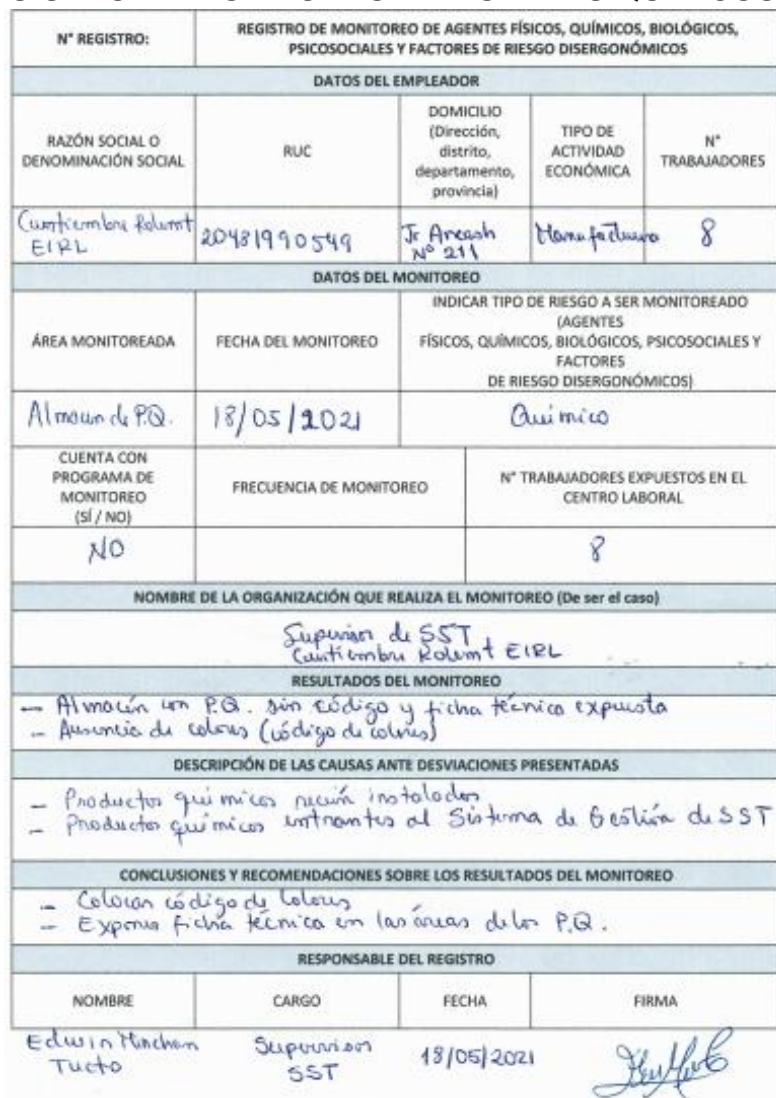 N° REGISTRO:
REGISTRO DE MONITOREO DE AGENTES FÍSICOS, QUÍMICOS, BIOLÓGICOS,
PSICOSOCIALES Y FACTORES DE RIESGO DISERGONÓMICOS
DATOS DEL EMPLEADOR
RAZÓN SOCIAL O
DENOMINACIÓN SOCIAL
RUC
DOMICILIO
(Dirección,
distrito,
departamento,
provincia)
TIPO DE
ACTIVIDAD
ECONÓMICA
N°
TRABAJADORES
Curtiembre Rolemt
EIRL
20481990549
Jr Ancash
N° 211
Manufactura
8
DATOS DEL MONITOREO
ÁREA MONITOREADA
FECHA DEL MONITOREO
INDICAR TIPO DE RIESGO A SER MONITOREADO
(AGENTES
FÍSICOS, QUÍMICOS, BIOLÓGICOS, PSICOSOCIALES Y
FACTORES
DE RIESGO DISERGONÓMICOS)
Almacen de P.Q.
18/05/2021
Quimico
CUENTA CON
PROGRAMA DE
MONITOREO
(SÍ / NO)
FRECUENCIA DE MONITOREO
N° TRABAJADORES EXPUESTOS EN EL
CENTRO LABORAL
NO
8
NOMBRE DE LA ORGANIZACIÓN QUE REALIZA EL MONITOREO (De ser el caso)
Supervisor de SST
Curtiembre Rolemt EIRL
RESULTADOS DEL MONITOREO
- Almacén con P.Q. sin código y ficha técnica expuesta
- Ausencia de colores (código de colores)
DESCRIPCIÓN DE LAS CAUSAS ANTE DESVIACIONES PRESENTADAS
- Productos quimicos recién instalados
- Productos quimicos entrantes al Sistema de Gestión de SST
CONCLUSIONES Y RECOMENDACIONES SOBRE LOS RESULTADOS DEL MONITOREO
- Colocar código de Colores
- Exponer ficha técnica en las áreas de los P.Q.
RESPONSABLE DEL REGISTRO
NOMBRE
CARGO
FECHA
FIRMA
Edwin Minchan
Tucto
Supervisor
SST
18/05/2021